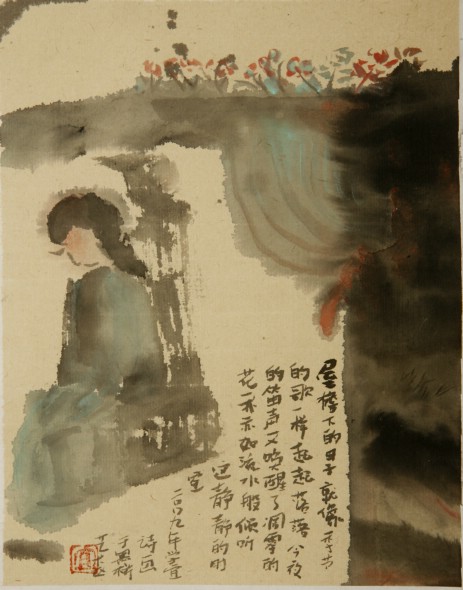 屋檐下的日子就像
的歌一样起起落落今夜
的笛声又唤醒了凋零的
花一朵朵如流水般倾听
这静静的时
空
二〇〇九年
诗画
于黑桥